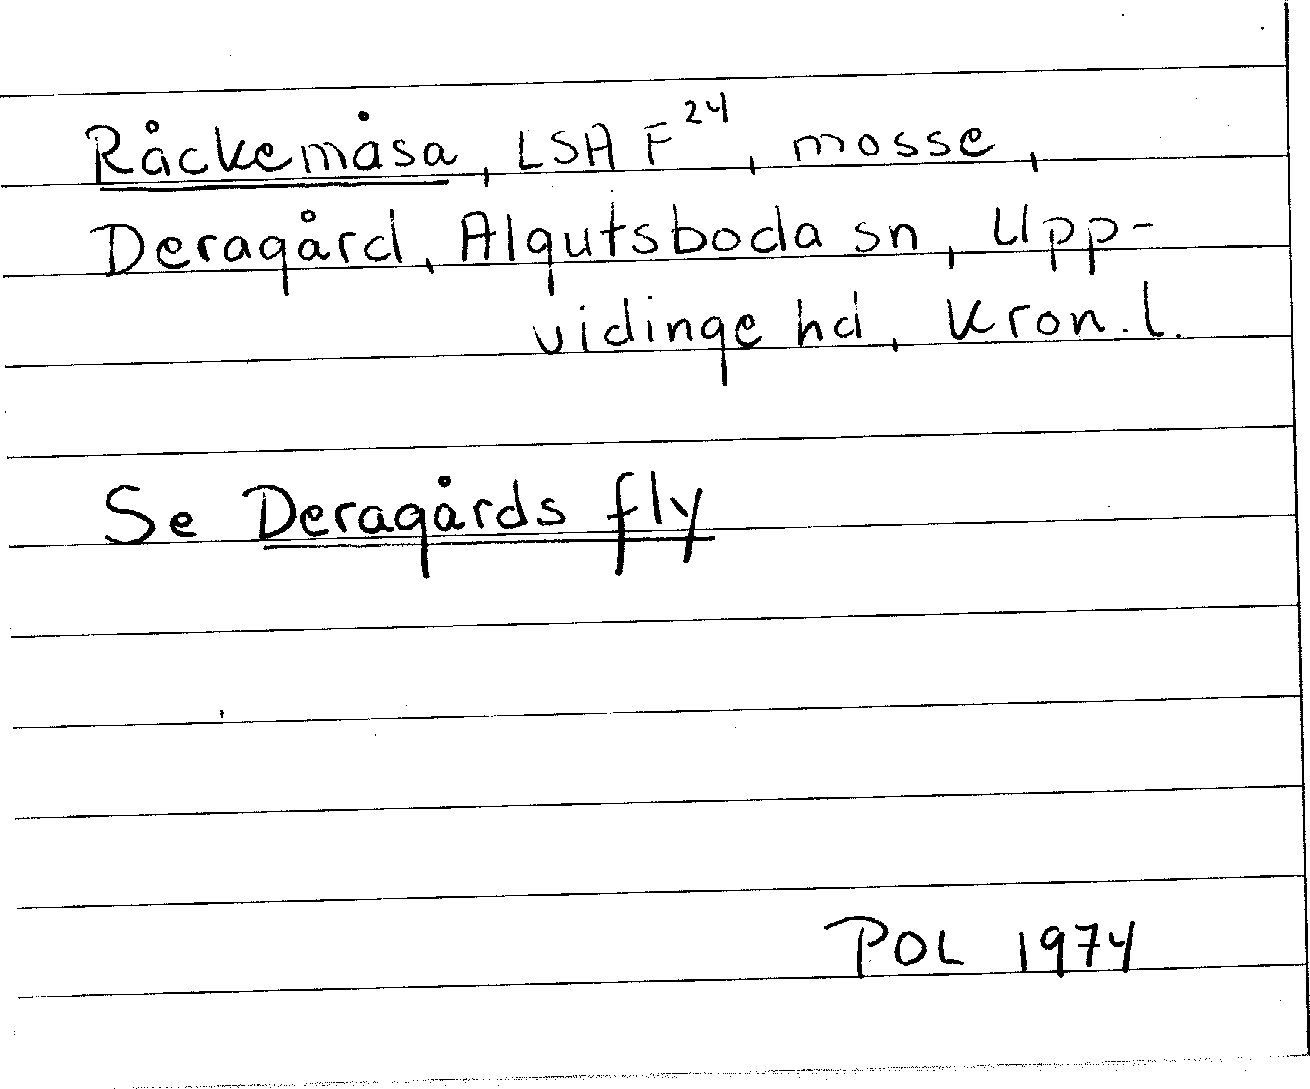 Råckemåsa, LSA F²⁴, mosse,
Deragård, Algutsboda sn, Upp-
vidinge hd, Kron. l.
Se Deragårds fly
POL 1974